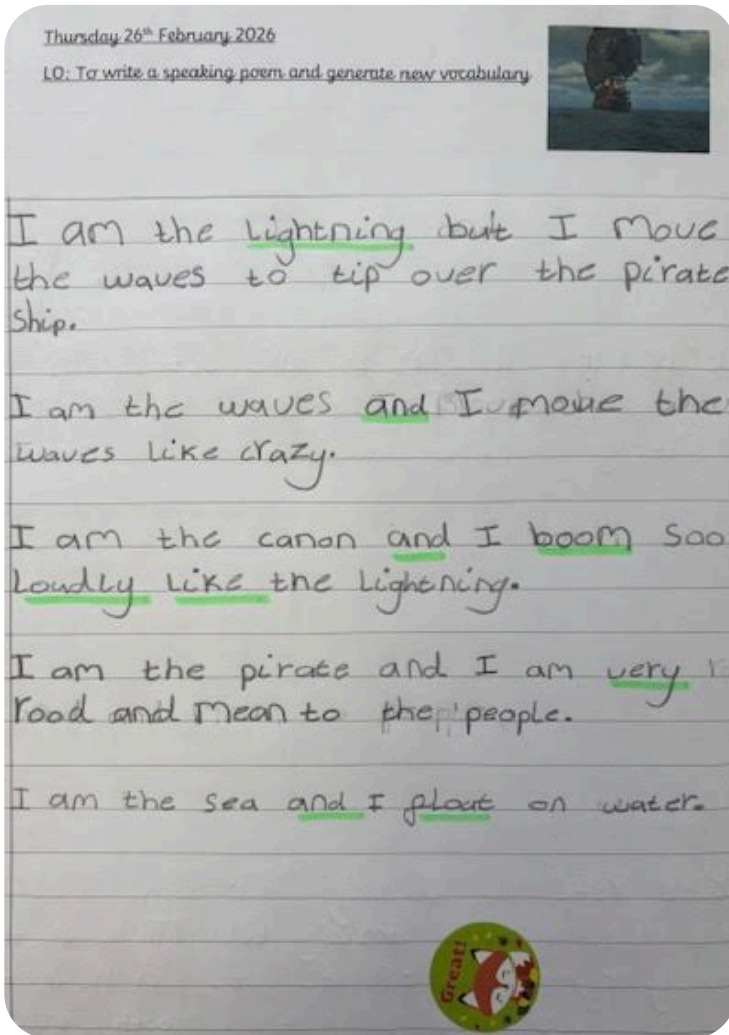 Thursday 26th February 2026
LO: To write a speaking poem and generate new vocabulary
I am the Lightning but I move
the waves to tip over the pirate
Ship.
I am the waves and I move the
waves like crazy.
I am the canon and I boom Soo
Loudly like the Lightning.
I am the pirate and I am very
rood and mean to the people.
I am the sea and I float on water.
Great!